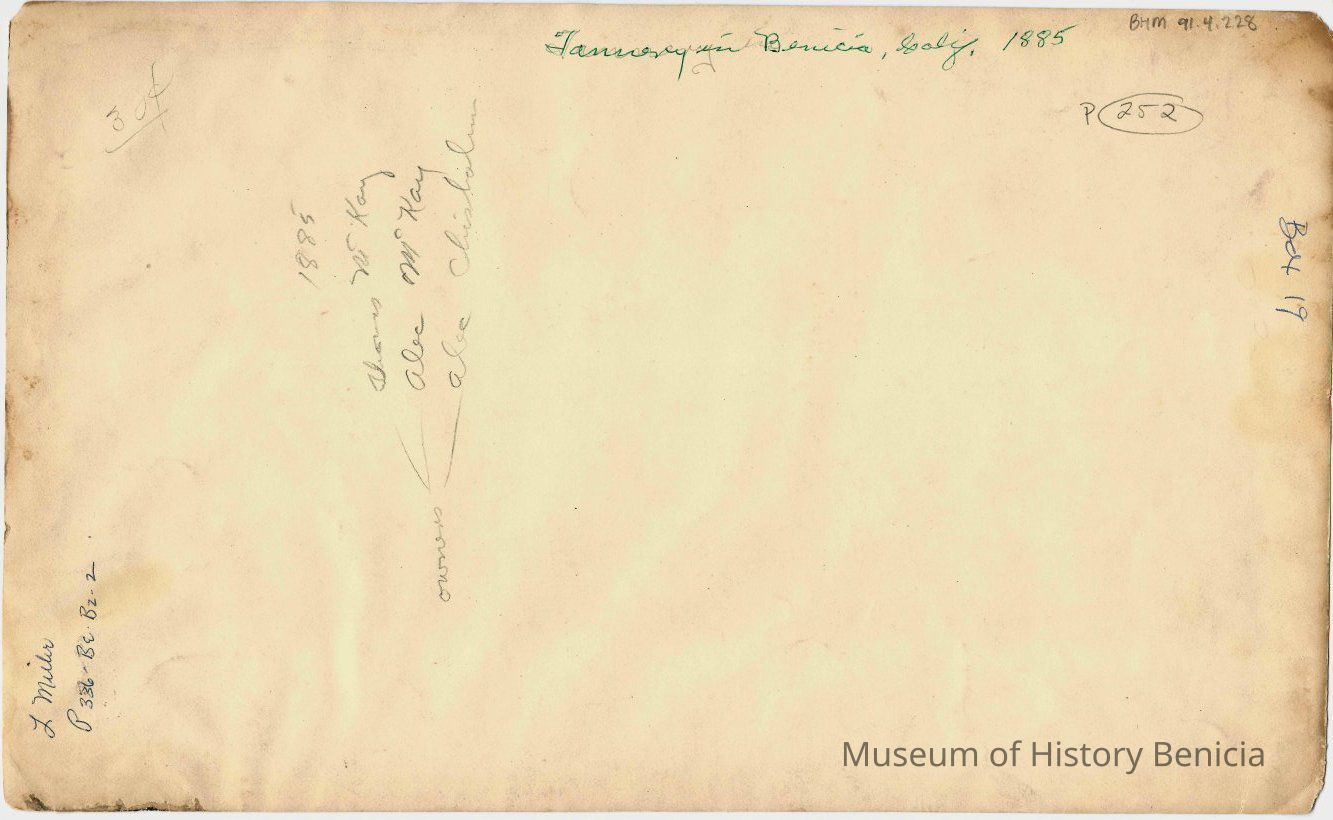 BHM 91.4.228
Tannery in Benicia, Calif. 1885
P 252
Box 19
1885
Thomas McKay
Alec McKay
Alec Chisholm
owners
L Miller
P 336-Be-B2-2
Museum of History Benicia